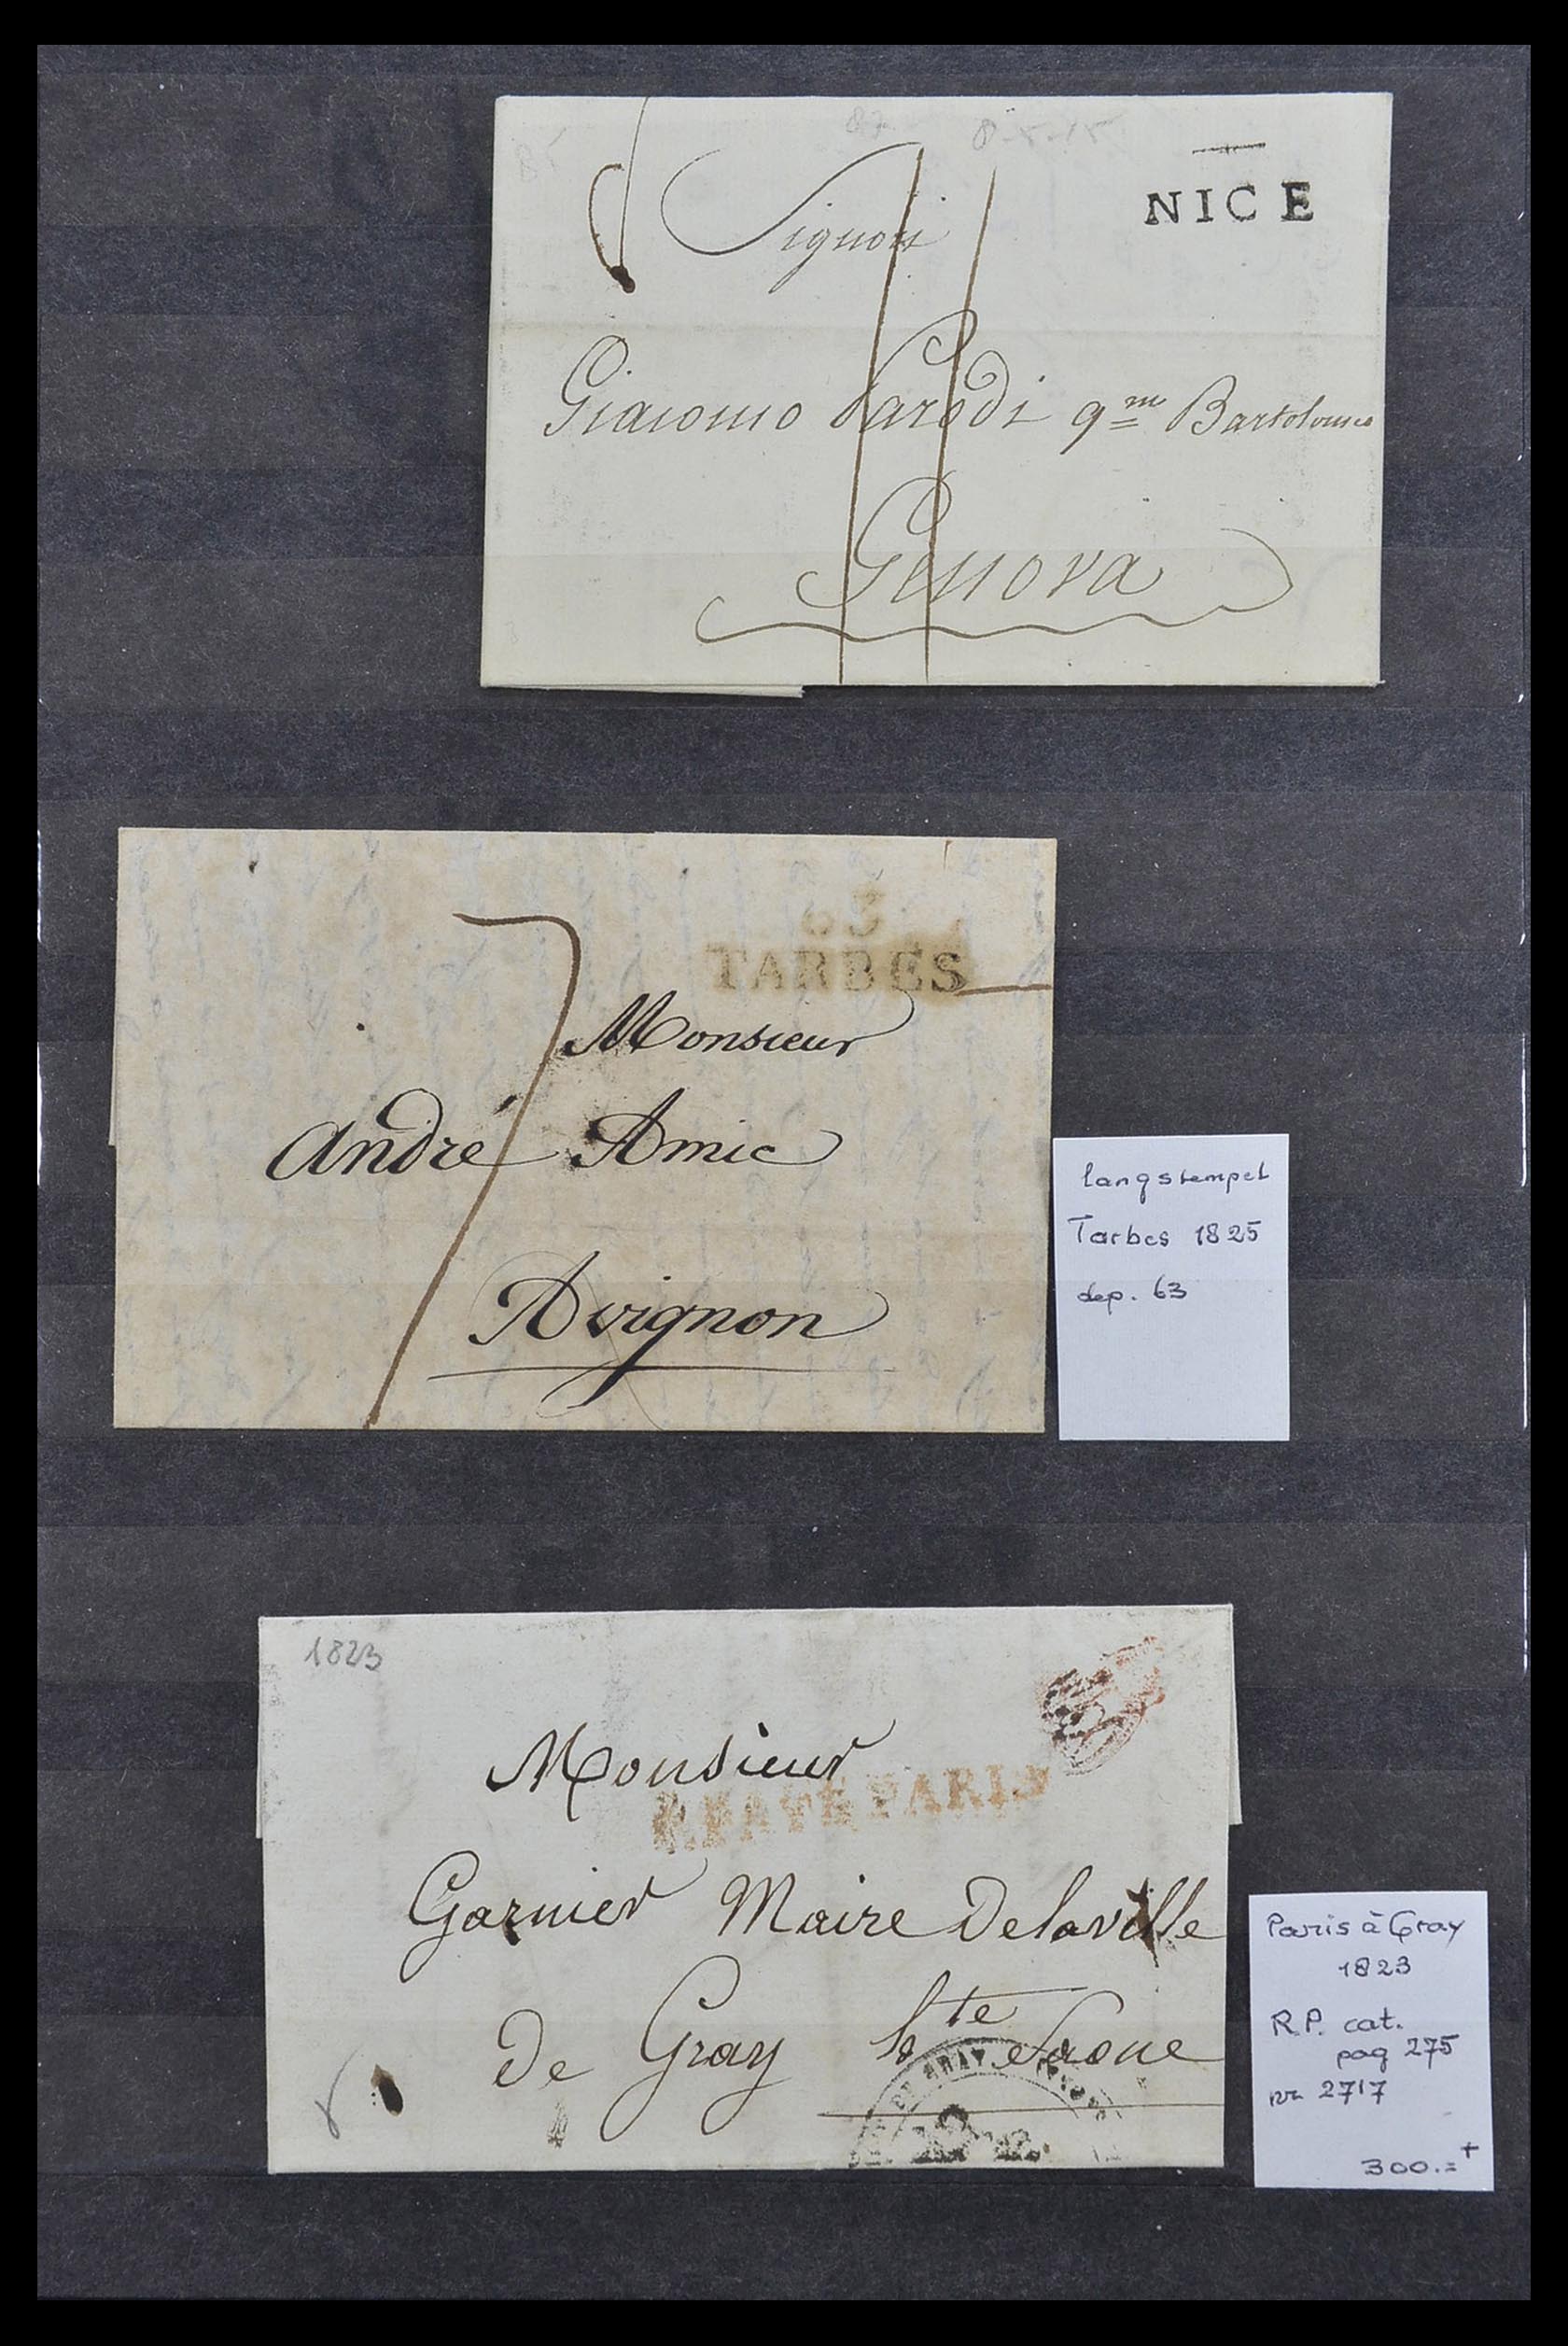 8-5-15
NICE
Signori
Giacomo Parodi qm Bartolomeo
Genova
63
TARBES
7
Monsieur
André Amic
Avignon
langstempel
Tarbes 1825
dep. 63
1823
Monsieur
P.PAYÉ PARIS
Garnier Maire Delaville
De Gray hte Saone
GRAY
Paris à Gray
1823
R.P. cat.
pag 275
nr 2717
300.= +